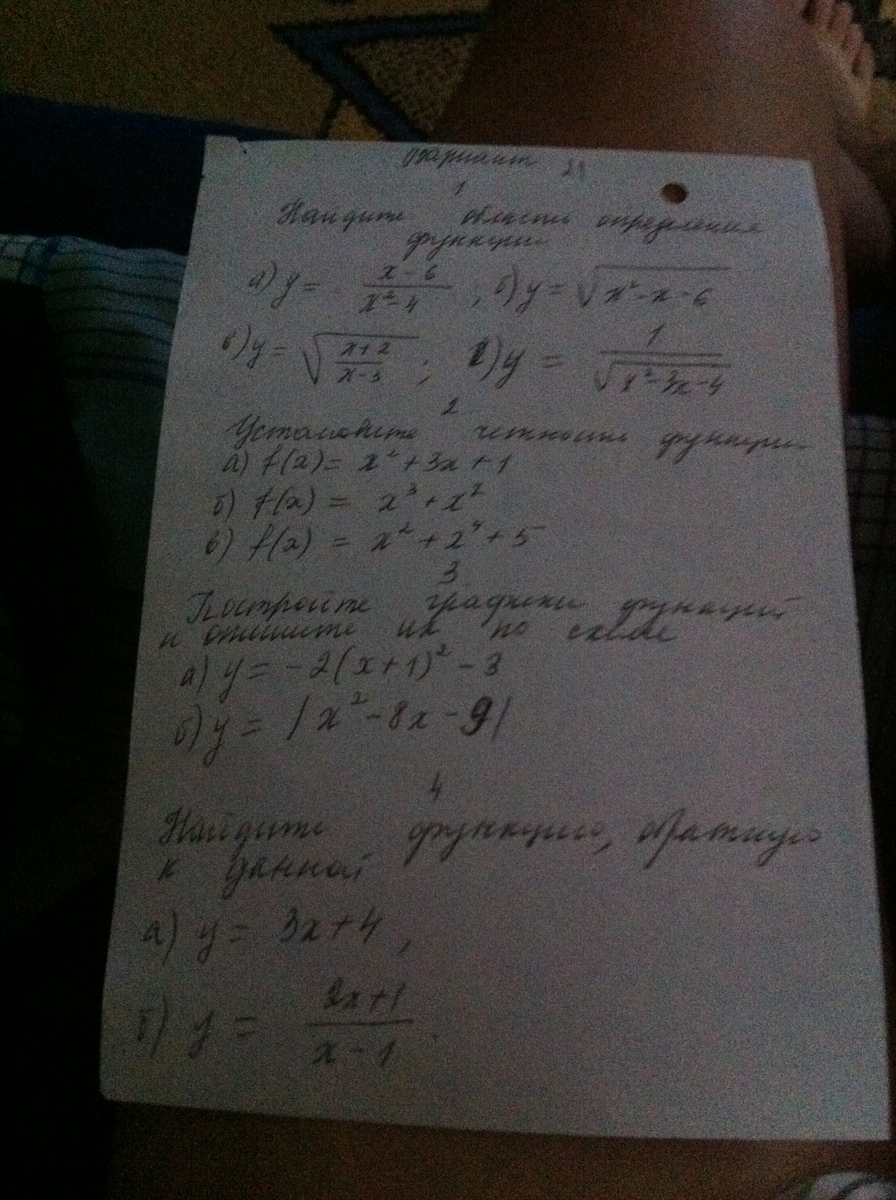 Вариант 21
1
Найдите области определения
функции
а) y = x-6 / x²-4 ; б) y = √x²-x-6
в) y = √x+2 / x-3 ; г) y = 1 / √x²-3x-4
2
Установите четность функции
а) f(x) = x² + 3x + 1
б) f(x) = x³ + x²
в) f(x) = x² + 2⁴ + 5
3
Постройте графики функций
и опишите их по схеме
а) y = -2(x+1)² - 3
б) y = |x² - 8x - 9|
4
Найдите функцию, обратную
к данной
а) y = 3x + 4 ,
б) y = 2x+1 / x-1 .